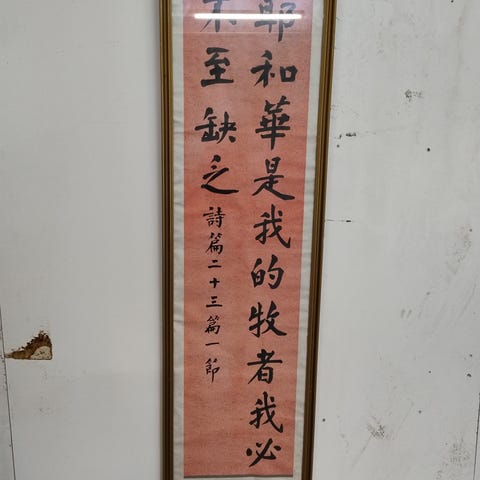 耶和華是我的牧者我必
不至缺乏 詩篇二十三篇一節